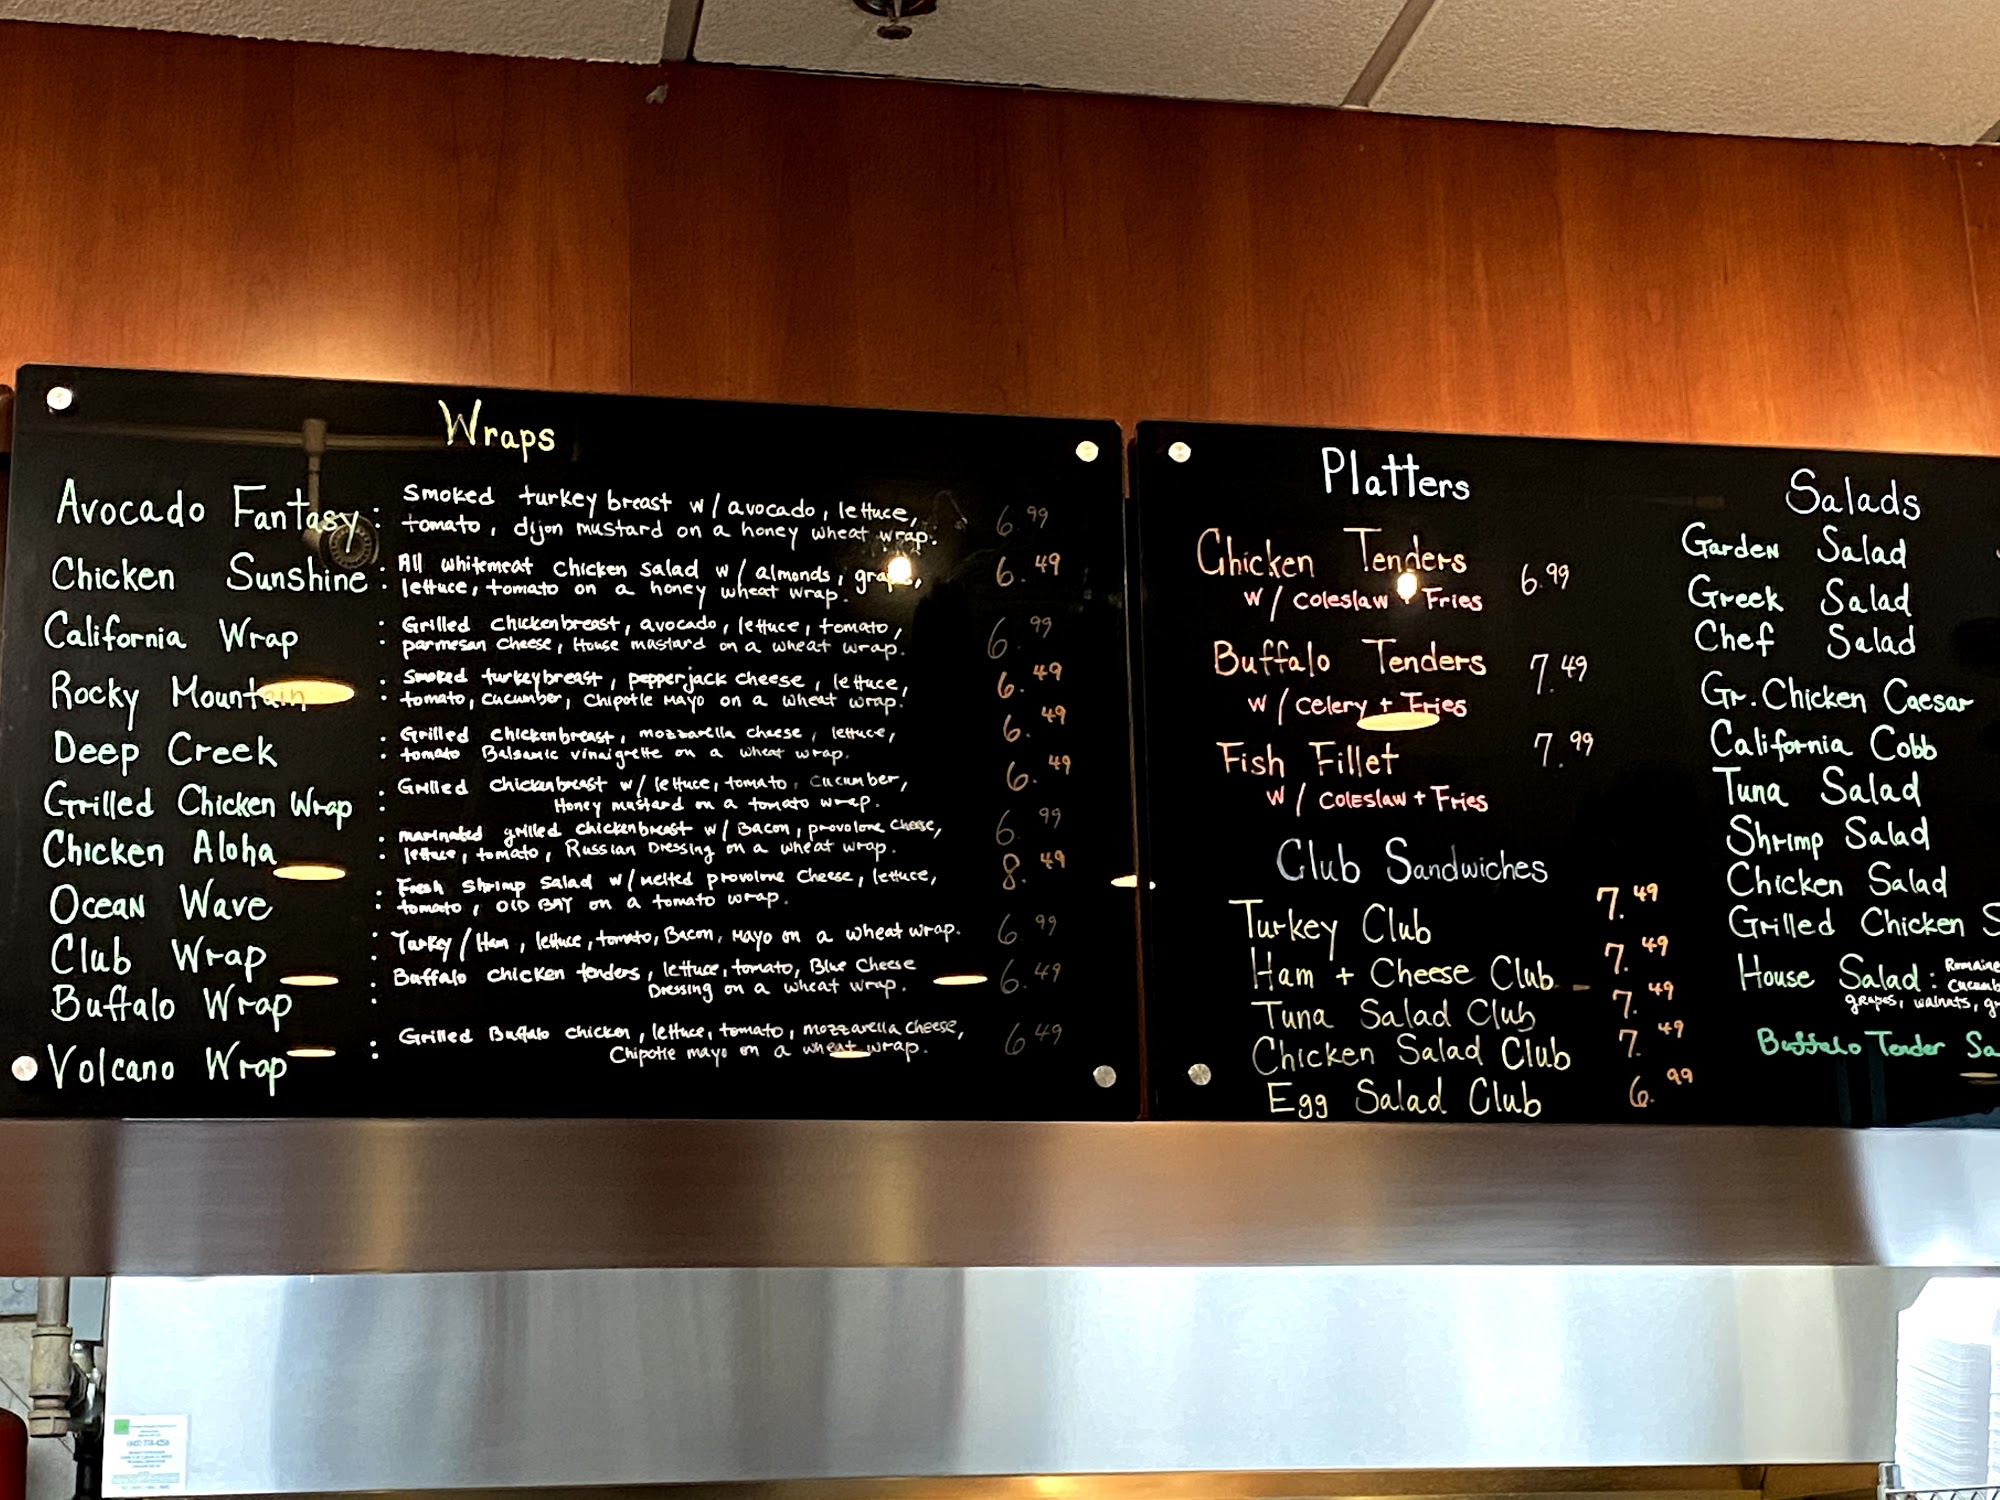 Wraps
Avocado Fantasy : Smoked turkey breast w/ avocado, lettuce, 6.99
tomato, dijon mustard on a honey wheat wrap.
Chicken Sunshine : All whitemeat chicken salad w/ almonds, grapes, 6.49
lettuce, tomato on a honey wheat wrap.
California Wrap : Grilled chickenbreast, avocado, lettuce, tomato, 6.99
parmesan cheese, House mustard on a wheat wrap.
Rocky Mountain : Smoked turkeybreast, pepperjack cheese, lettuce, 6.49
tomato, cucumber, Chipotle Mayo on a wheat wrap.
Deep Creek : Grilled chickenbreast, mozzarella cheese, lettuce, 6.49
tomato Balsamic vinaigrette on a wheat wrap.
Grilled Chicken Wrap : Grilled chickenbreast w/ lettuce, tomato, cucumber, 6.49
Honey mustard on a tomato wrap.
Chicken Aloha : marinated grilled chickenbreast w/ Bacon, provolone cheese, 6.99
lettuce, tomato, Russian Dressing on a wheat wrap.
Ocean Wave : Fresh shrimp salad w/ melted provolone cheese, lettuce, 8.49
tomato, OLD BAY on a tomato wrap.
Club Wrap : Turkey/Ham, lettuce, tomato, Bacon, Mayo on a wheat wrap. 6.99
Buffalo Wrap : Buffalo chicken tenders, lettuce, tomato, Blue Cheese 6.49
Dressing on a wheat wrap.
Volcano Wrap : Grilled Buffalo chicken, lettuce, tomato, mozzarella cheese, 6.49
Chipotle mayo on a wheat wrap.
Platters
Chicken Tenders 6.99
w/ Coleslaw + Fries
Buffalo Tenders 7.49
w/ Celery + Fries
Fish Fillet 7.99
w/ Coleslaw + Fries
Club Sandwiches
Turkey Club 7.49
Ham + Cheese Club 7.49
Tuna Salad Club 7.49
Chicken Salad Club 7.49
Egg Salad Club 6.99
Salads
Garden Salad
Greek Salad
Chef Salad
Gr. Chicken Caesar
California Cobb
Tuna Salad
Shrimp Salad
Chicken Salad
Grilled Chicken S
House Salad : Romaine
grapes, walnuts,
Buffalo Tender Sa